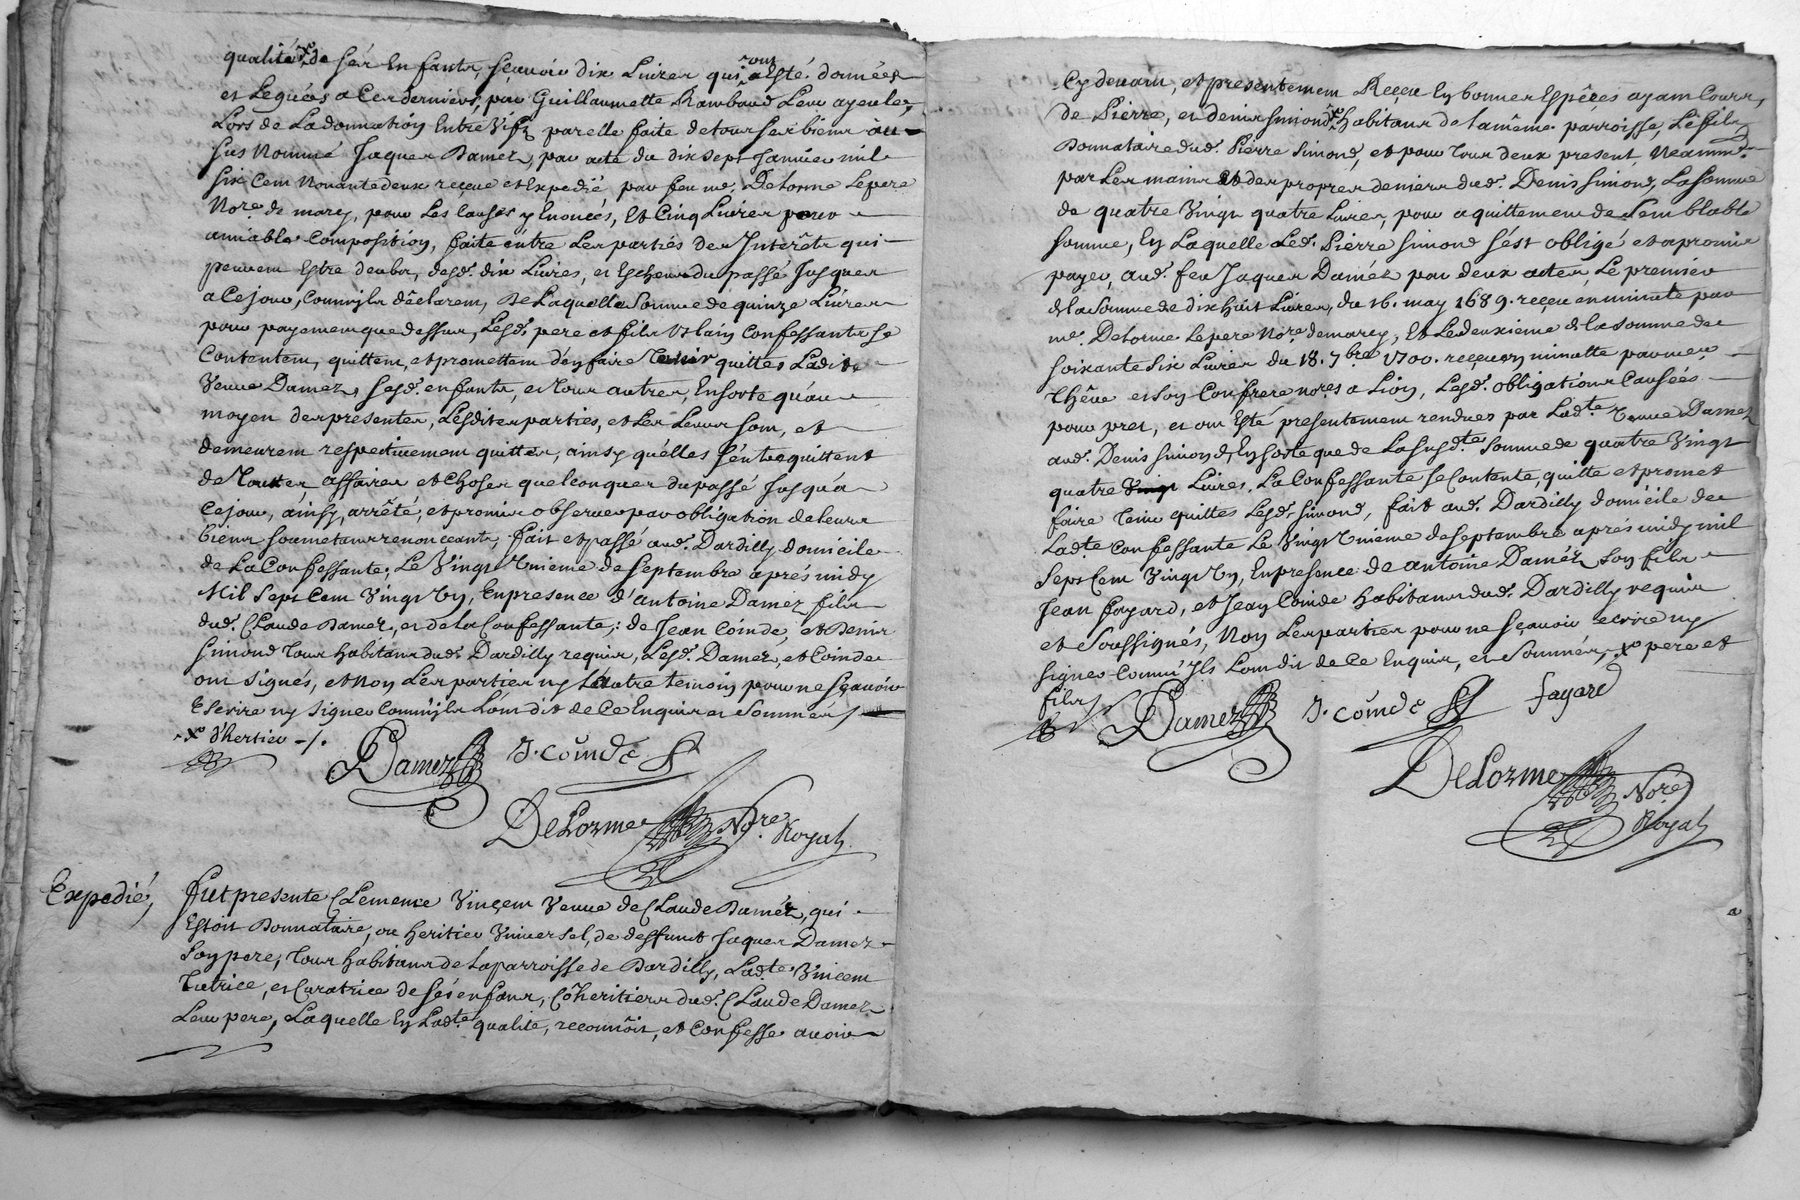 qualité x de ses Enfants, sçavoir dix Livres qui ont Esté données
et Leguées a Ces derniers, par Guillaumette Rambaud Leur ayeule,
Lors de La donnation Entre Vifs par elle faite de tous ses biens au
sus Nommé Jaques Damez, par acte du dix sept Janvier mil
six Cent Nonante deux reçeue et Expedié par feu me. Delorme Lepere
Nore. de marcy, pour Les Causes y Enoncés, Et Cinq Livres pour
amiable Composition, faite entre Les parties des Interêts qui
peuvent Estre deubs, desds. dix Livres, et Escheus du passé Jusques
a Ce jour, Comm'ils déclarent, De Laquelle Somme de quinze Livres
pour payement que dessus, Lesds. pere et fils Confessants se
Contentent, quittent, et promettent d'en faire Tenir quittes Ladite
Veuve Damez, sesds. enfants, et tous autres, Ensorte qu'au
moyen des presentes, Lesdites parties, et Les Leurs sont, et
demeurent respectivement quittes, ainsy qu'elles s'entrequittent
de Toutes affaires et Choses quelconques du passé Jusqu'a
Ce jour, ainsy arrêté, et promis observer par obligation de leurs
biens soumetans renonceants, fait et passé aud. Dardilly domicile
de La Confessante, Le Vingt Unieme de septembre après midy
Mil Sept Cent Vingt Un, En presence d'antoine Damez fils
dud. Claude Damez, et de la Confessante; de Jean Coinde, et Denis
Simond tous habitans dud. Dardilly requis, Lesds. Damez, et Coinde
ont signés, et Non Les parties ny L'autre temoin pour ne sçavoir
Escrire ny signer Comm'ils L'ont dit de Ce Enquis et Sommés
x
Damez J. Coinde
DeLorme Nore. Royal
Expedié,
fut presente Clemence Vinçent Veuve de Claude Damez, qui
Estoit Donnataire, ou heritier Universel, de deffunt Jaques Damez
Son pere, tous habitans de La parroisse de Dardilly, Ladte. Vincent
Tutrice, et Curatrice de ses enfans, Coheritiers dud. Claude Damez
Leur pere, Laquelle En Ladte. qualité, reconnoit, et Confesse avoir
Cy devant, et presentement Reçeu En bonnes Espèces ayant Cours,
de Pierre, et denis simond x habitans de la même parroisse, Le fils
Donnataire dud. Pierre Simond, et pour tous deux present Neammt.
par Les mains et des propres deniers dud. Denis Simond, La somme
de quatre Vingt quatre Livres, pour aquittement de Semblable
somme, En Laquelle Led. Pierre Simond s'est obligé et a promis
payer, aud. feu Jaques Damez par deux actes, Le premier
de la Somme de dix huit Livres, du 16. may 1689. reçeu en minute par
me. Delorme Le pere Nore. de marcy, Et Le deuxieme de la somme de
soixante six Livres du 18. 7bre 1700. reçeu en minutte par me.
Thêve et son Confrere nores a Lion, Lesds. obligations Causées
pour pret, et ont Esté presentement rendues par Ladte. Veuve Damez
aud. Denis simond, En sorte que de La susdte. somme de quatre Vingt
quatre Livres, La Confessante se Contente, quitte et promet
faire tenir quittes Lesds. simond, fait aud. Dardilly domicile de
Ladte Confessante Le Vingt Unieme de septembre après midy mil
Sept Cent Vingt Un, En presence de antoine Damez son fils
Jean fayard, et Jean Coinde habitans dud. Dardilly requis
et Soussignés, Non Les parties pour ne sçavoir ecrire ny
signer Comm'Ils L'ont dit de Ce Enquis, et Sommés, x pere et
fils
Damez J. Coinde fayard
DeLorme Nore Royal